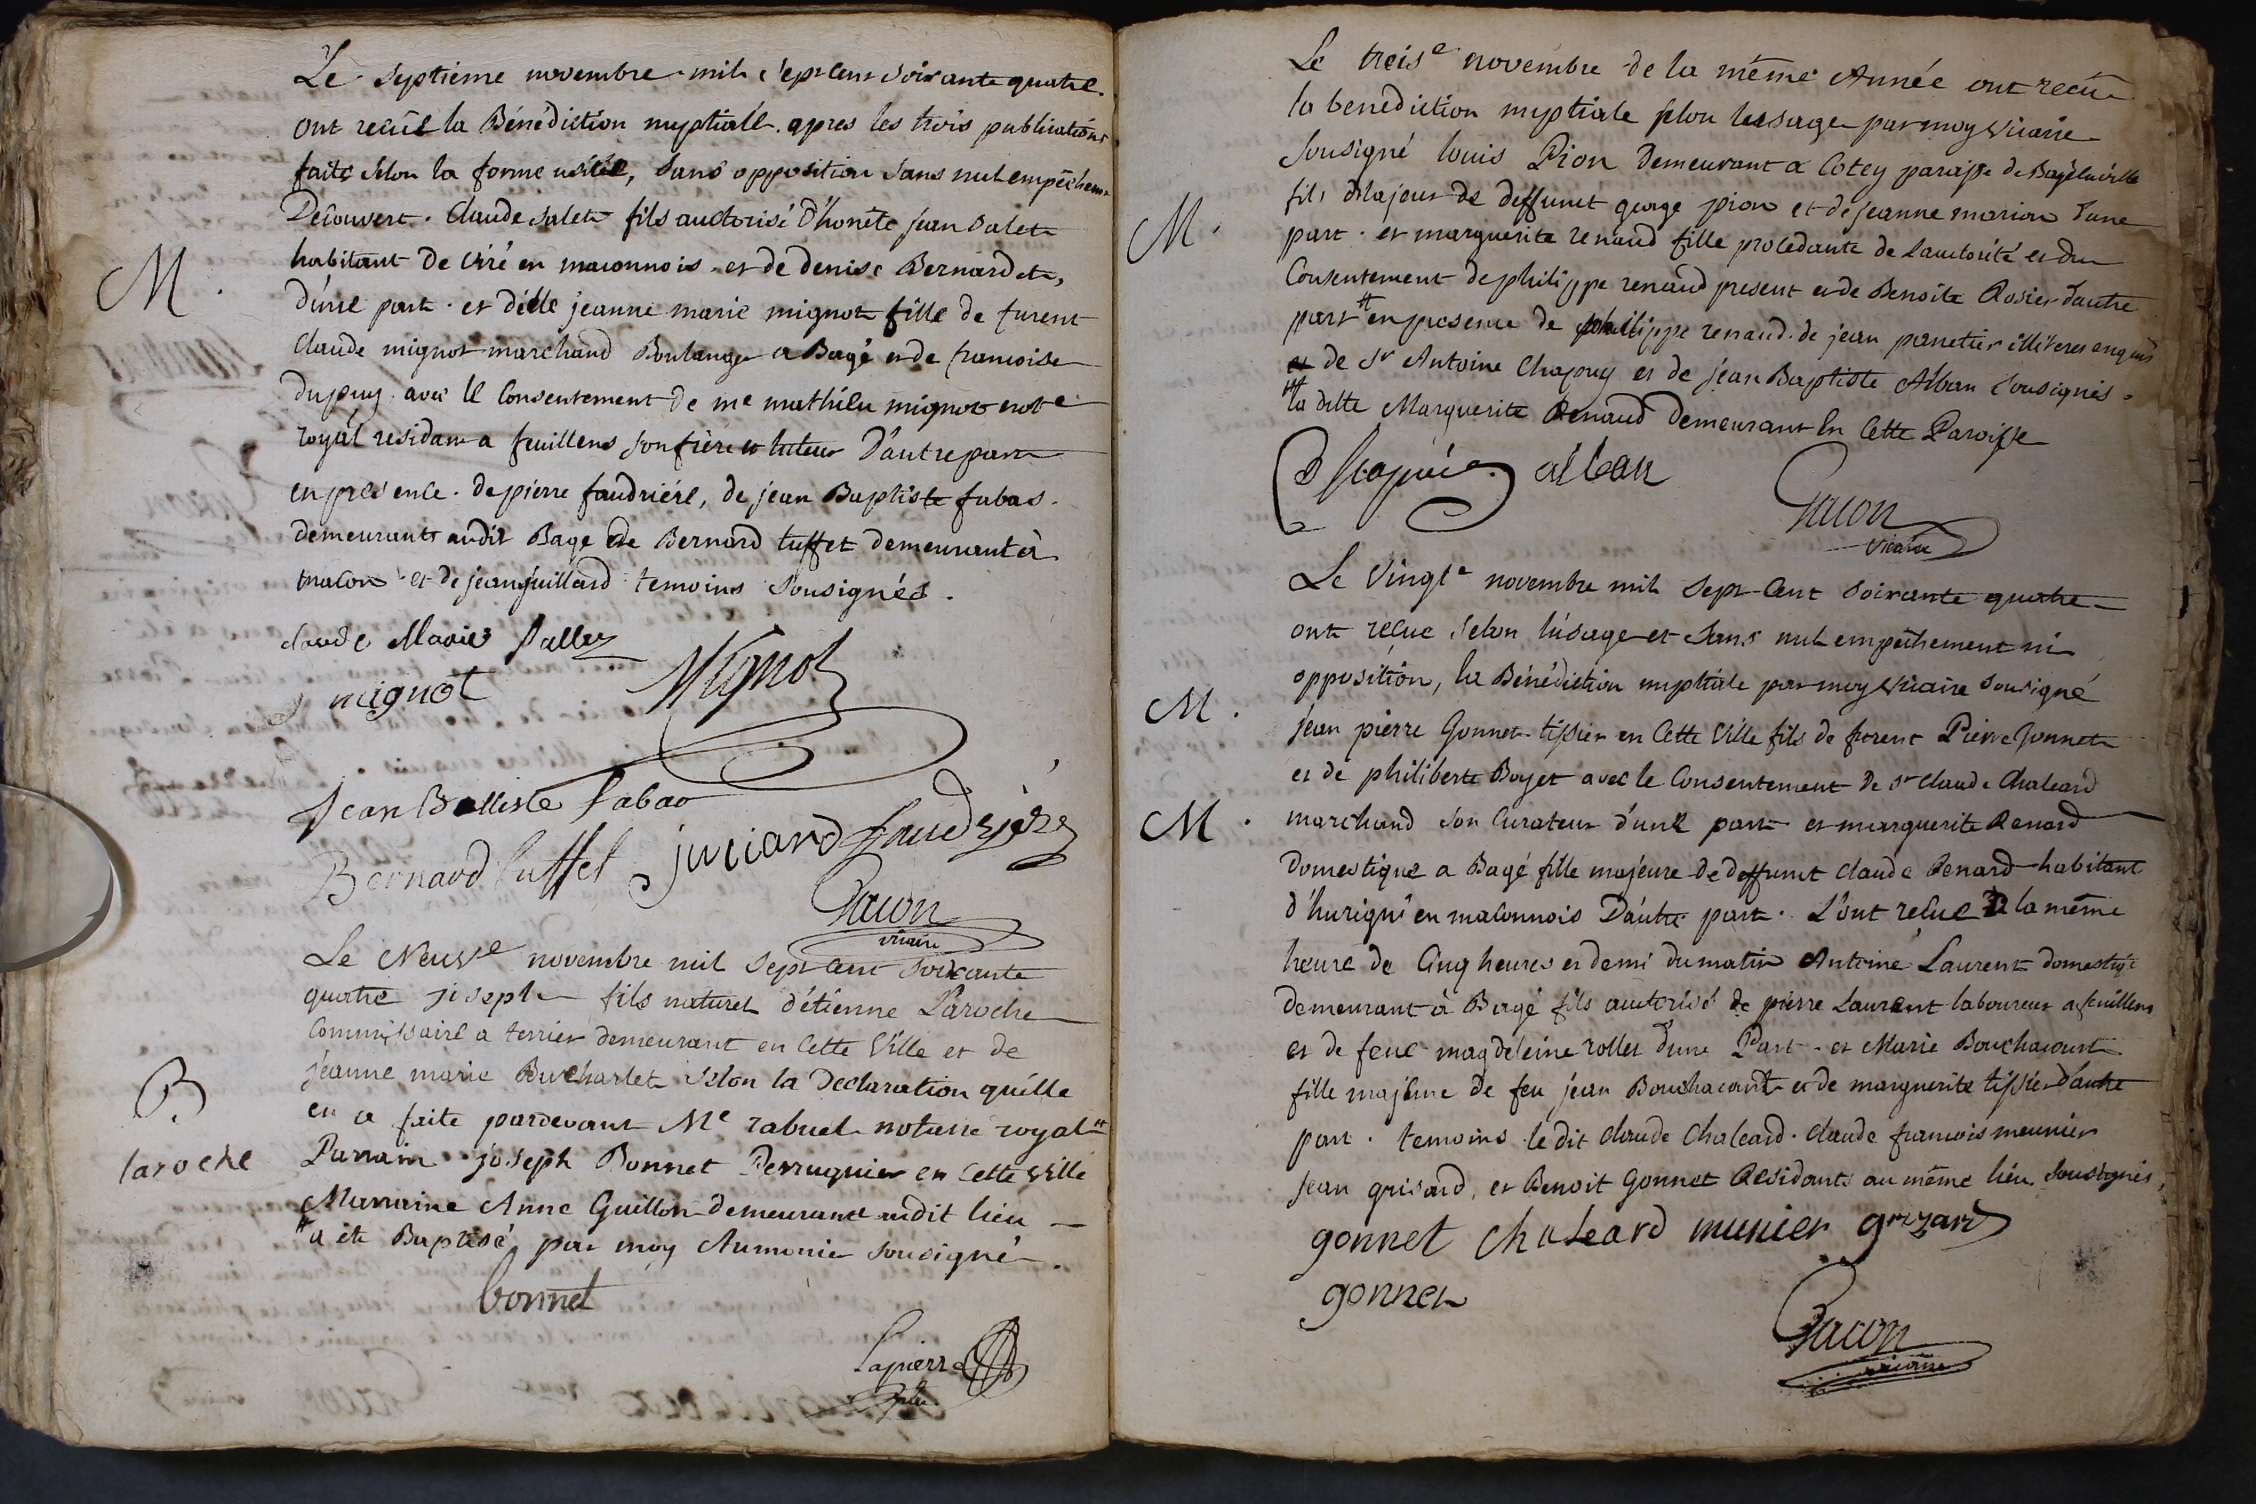 Le septième novembre mil sept cent soixante quatre.
ont recüe la Bénédiction nuptiale apres les trois publications
faites selon la forme usitée, sans opposition sans nul empêchem.
Découvert. Claude Salet fils auctorisé d'honète jean Salet
habitant de Viré en maconnois et de denise Bernardet,
M.
d'une part. et dlle jeanne marie mignot fille de furent
claude mignot marchand Boulanger a Bagé et de francoise
dupuy avec le Consentement de me mathieu mignot note
royal residant a feuillens son frère et tuteur D'autre part
en présence de pierre faudriére, de jean Baptiste fabas
demeurants audit Bage de Bernard tuffet demeurant à
macon et de jean juillard temoins sousignés.
claude Marie Sallez
mignot Mignot
Jean Batiste Fabao
Bernard tuffet juliard faudriere
Gacon
vicaire
Le Neuve novembre mil sept cent soixante
quatre joseph fils naturel d'étienne Laroche
Commissaire a terrier demeurant en cette Ville et de
B.
jeanne marie Bucharlet selon la Declaration qu'elle
en a faite pardevant Me rabuel notaire royal #
laroche
Parrain joseph Bonnet Perruquier en cette ville
Marraine Anne Guillon demeurant audit lieu
# a été Baptisé par moy Aumonier sousigné.
bonnet
Lapierre
ptre
Le treise novembre de la même Année ont recüe
la benediction nuptiale selon l'usage par moy vicaire
sousigné louis Pion Demeurant a Cotey paroisse de Bagé la ville
fils Majeur de deffunct george pion et de jeanne marion d'une
M.
part. et marguerite renaud fille procedante de l'autorité et du
Consentement de philippe renaud present et de Benoite Rosier d'autre
part # en presence de philippe renaud. de jean panetier illiteres enquis
de Sr Antoine Chapuy et de jean Baptiste Alban sousignés.
# la ditte Marguerite Renaud Demeurant En Cette Paroisse
alban
Gacon
vicaire
Le Vingte novembre mil sept cent soixante quatre
ont reçue selon l'usage et sans nul empêchement ni
opposition, la Bénédiction nuptiale par moy vicaire sousigné
M.
jean pierre Gonnet tissier en Cette Ville fils de furent Pierre Gonnet
et de philiberte Boyet avec le Consentement de Sr claude Chaleard
M.
marchand son Curateur d'une part et marguerite Renard
Domestique a Bagé fille majeure de deffunct claude Renard habitant
d'hurigni en maconnois D'autre part. L'ont reçue à la même
heure de Cinq heures et demi du matin Antoine Laurent domestiq
demeurant à Bagé fils auctorisé de pierre Laurent laboureur a feuillens
et de feue magdeleine rollet d'une Part. et Marie Bouchacourt
fille majeure de feu jean Bouchacourt et de marguerite tissier d'autre
part. temoins le dit claude Chaleard. claude francois meunier
jean grisard, et Benoit Gonnet Residants au même lieu soussignés,
gonnet chaleard munier grizard
gonnet
Gacon
vicaire